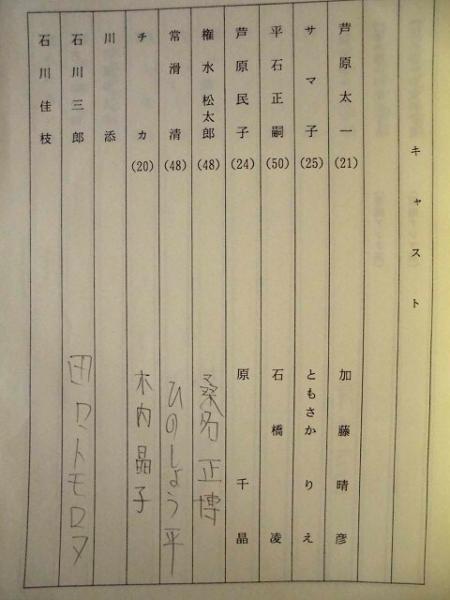 キャスト
芦原太一(21) 加藤晴彦
サマ子(25) ともさかりえ
平石正嗣(50) 石橋凌
芦原民子(24) 原千晶
権水松太郎(48) 桑名正博
常滑清(48) ひのしょう平
チカ(20) 木内晶子
川添
石川三郎 田口トモロヲ
石川佳枝